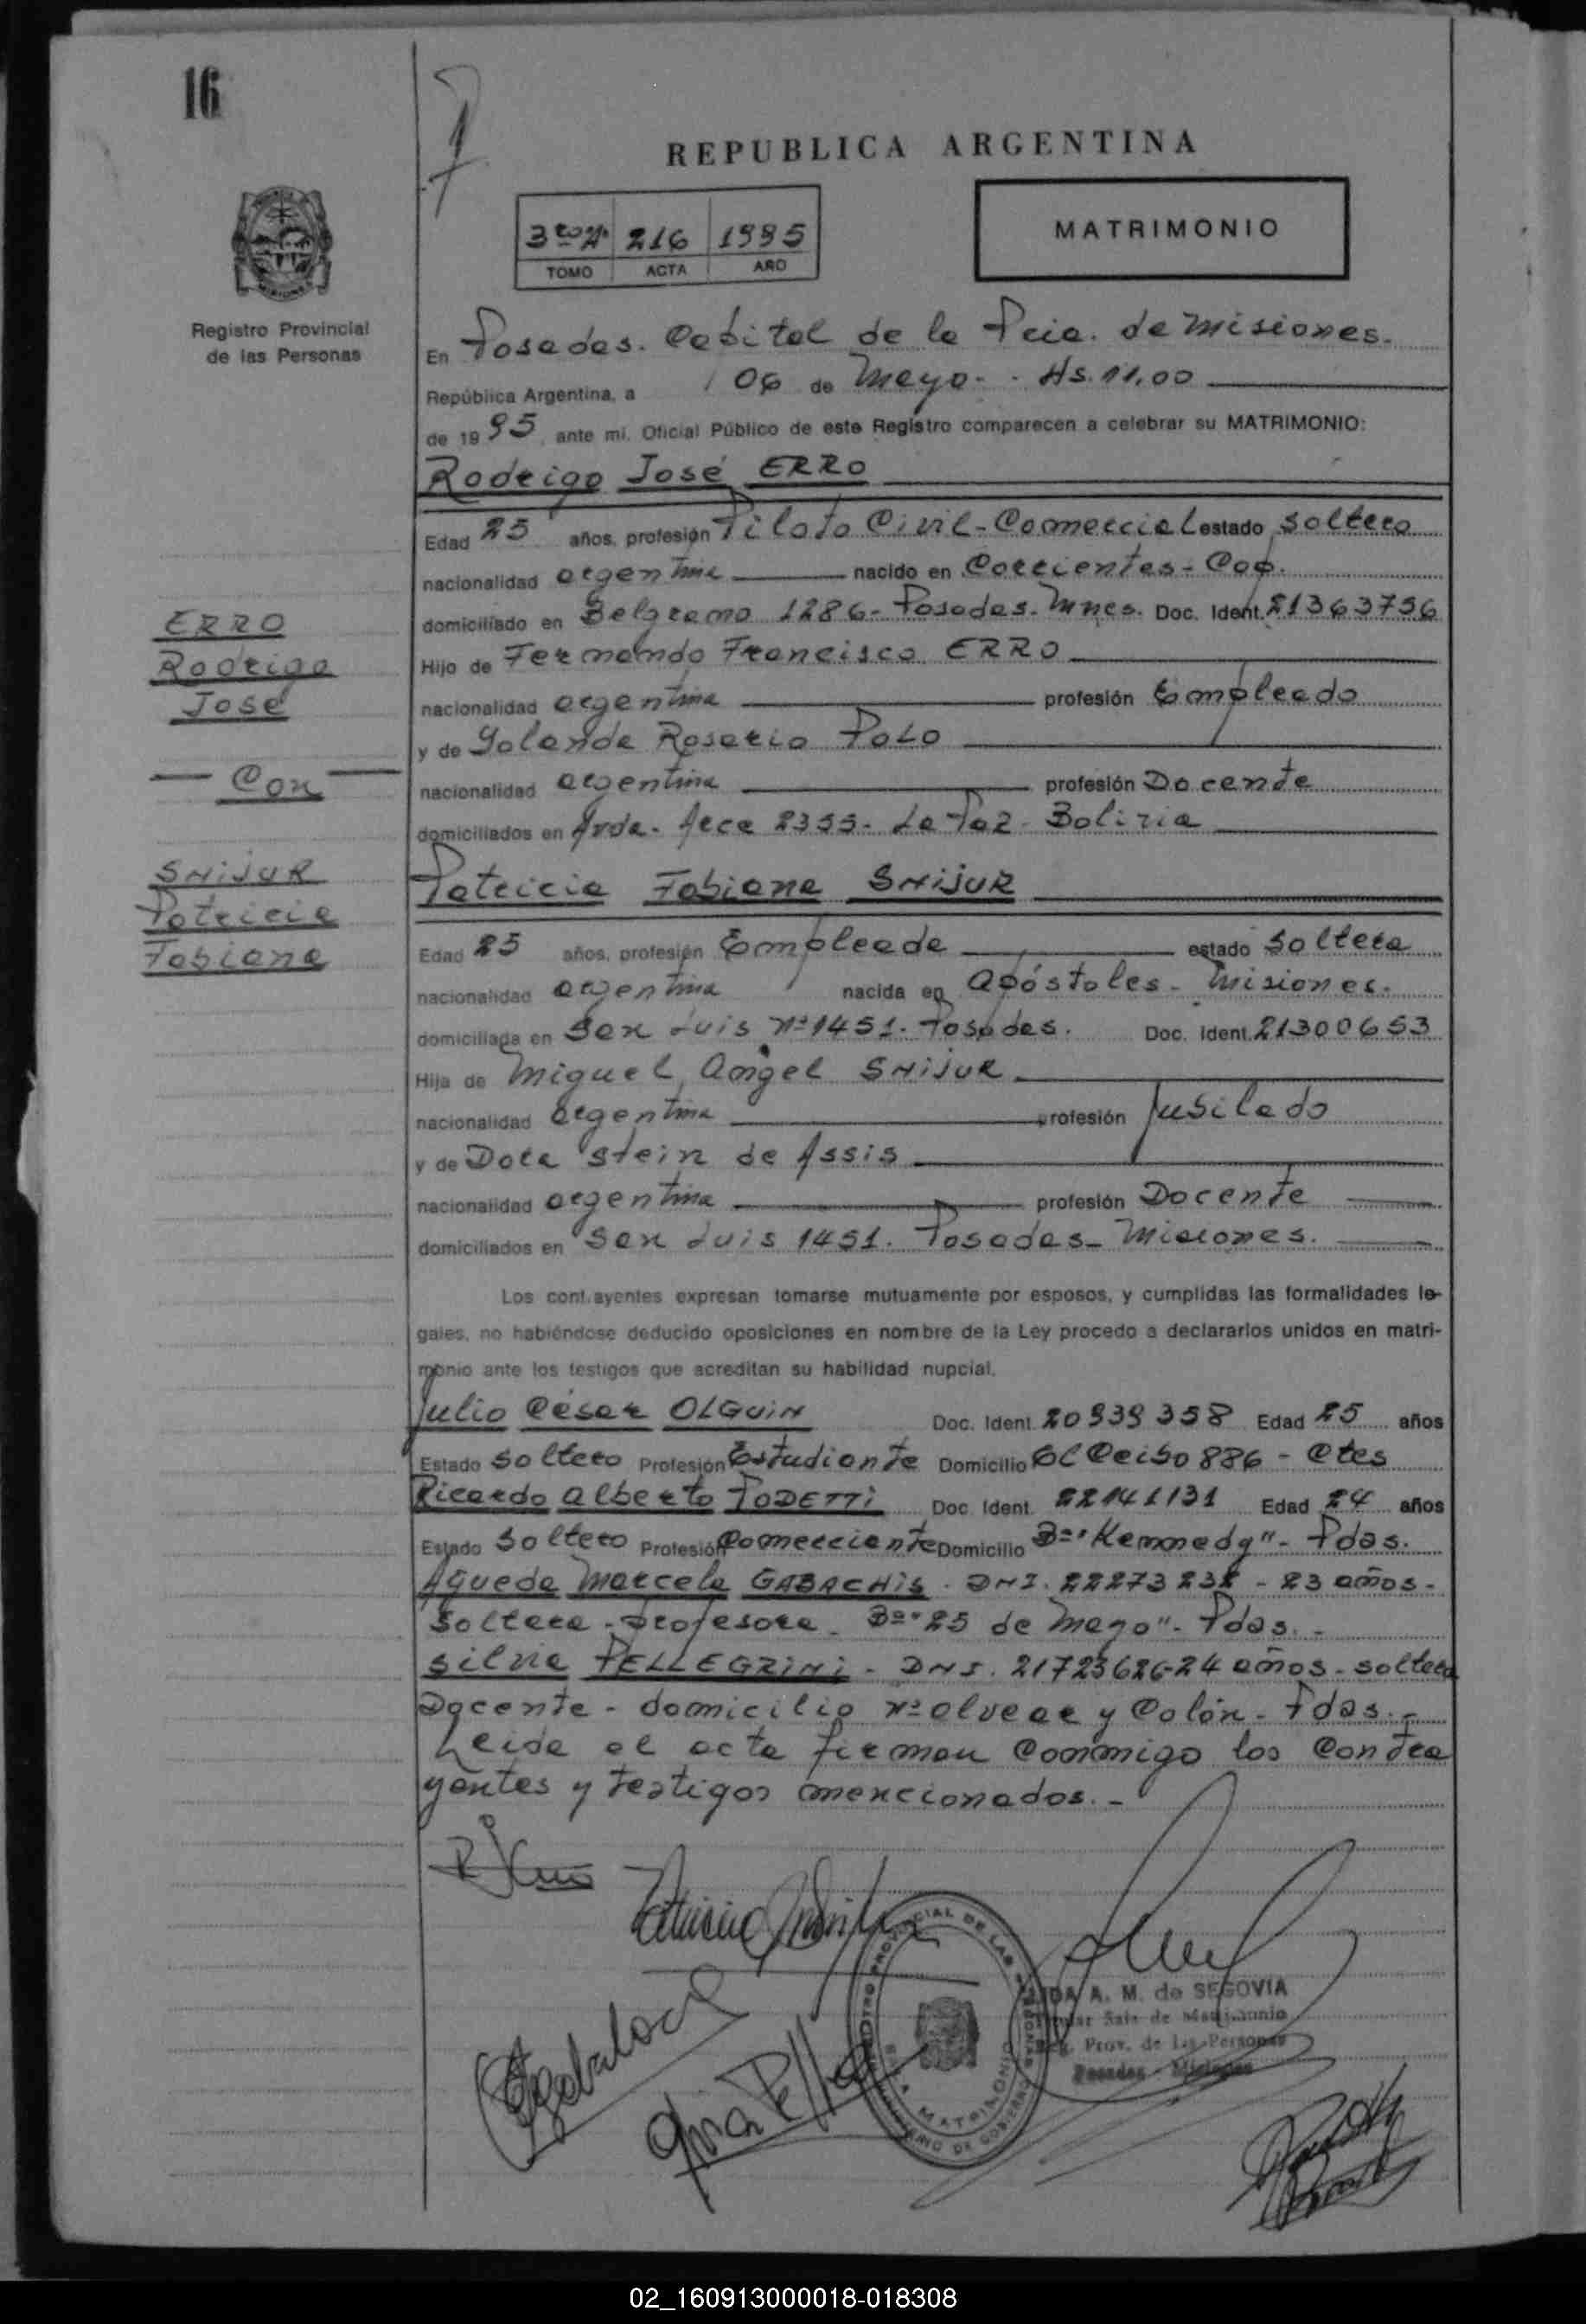 16
REPUBLICA ARGENTINA
3ro A. 216 1995
TOMO ACTA AÑO
MATRIMONIO
Registro Provincial
de las Personas
En Posadas. Capital de la Pcia. de Misiones.
República Argentina, a 06 de Mayo - Hs. 11,00
de 1995, ante mi, Oficial Público de este Registro comparecen a celebrar su MATRIMONIO:
Rodrigo José ERRO
Edad 25 años, profesión Piloto Civil-Comercial estado soltero
nacionalidad argentina nacido en Corrientes - Cap.
domiciliado en Belgrano 1286 - Posadas. Mnes. Doc. Ident. 21363756
Hijo de Fernando Francisco ERRO
nacionalidad argentina profesión Empleado
y de Yolanda Rosario POLO
nacionalidad argentina profesión Docente
domiciliados en Avda. Arce 2355 - La Paz - Bolivia
ERRO
Rodrigo
José
Con
SNIJUR
Patricia
Fabiana
Patricia Fabiana SNIJUR
Edad 25 años, profesión Empleada estado soltera
nacionalidad argentina nacida en Apóstoles - Misiones.
domiciliada en San Luis Nº 1451. Posadas. Doc. Ident. 21300653
Hija de Miguel Angel SNIJUR
nacionalidad argentina profesión Jubilado
y de Dora Stein de Assis
nacionalidad argentina profesión Docente
domiciliados en San Luis 1451. Posadas - Misiones.
Los contrayentes expresan tomarse mutuamente por esposos, y cumplidas las formalidades le-
gales, no habiéndose deducido oposiciones en nombre de la Ley procedo a declararlos unidos en matri-
monio ante los testigos que acreditan su habilidad nupcial.
Julio César OLGUIN Doc. Ident. 20939358 Edad 25 años
Estado soltero Profesión Estudiante Domicilio El Ceibo 886 - Ctes
Ricardo Alberto PODETTI Doc. Ident. 22141131 Edad 24 años
Estado Soltero Profesión Comerciante Domicilio Bº "Kennedy" - Pdas.
Agueda Marcela GABACHIS - DNI. 2227323 - 23 años -
Soltera - profesora - Bº "25 de Mayo" - Pdas. -
Silvia PELLEGRINI - DNI. 21723626 - 24 años - soltera
Docente - domicilio Nº alvear y Colón - Pdas. -
Leida el acta firman conmigo los Contra
yentes y testigos mencionados. -
A. M. de SEGOVIA
Sala de Matrimonio
Prov. de Las Personas
Posadas - Misiones
02_160913000018-018308